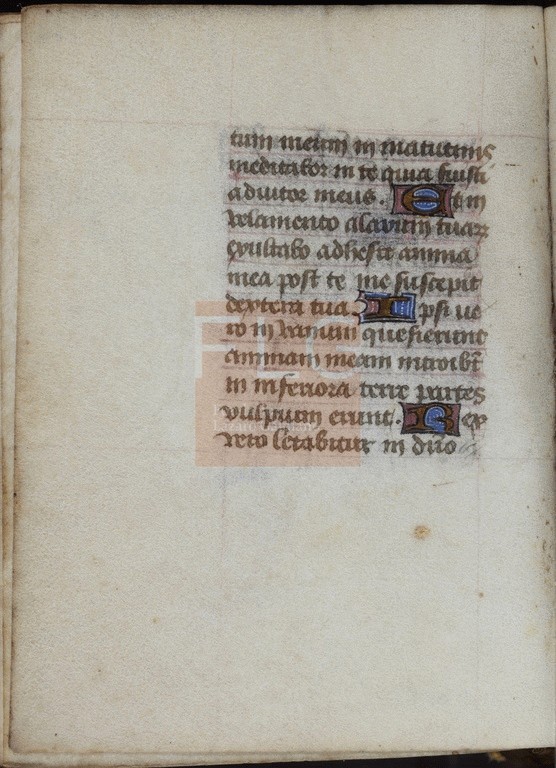 tum meum in matutinis
meditabor in te quia fuisti
adiutor meus. Et in
velamento alarum tuarꝝ
exultabo adhesit anima
mea post te me suscepit
dextera tua Ipsi ve
ro in vanum quesierunt
animam meam introibt̄
in inferiora terre partes
vulpium erunt. Rex
vero letabitur in dn̄o
FLG